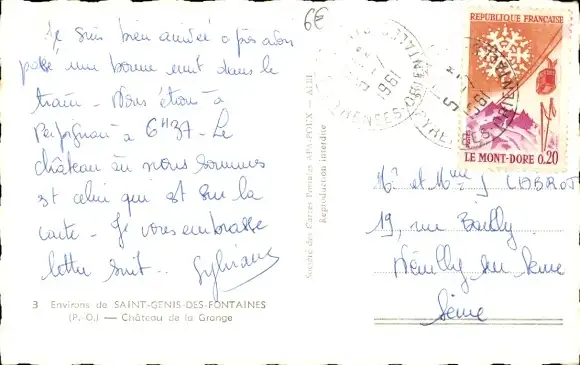 6€
Je suis bien arrivée après avoir
passé une bonne nuit dans le
train - Nous étions à
Perpignan à 6H37 - Le
château où nous sommes
est celui qui est sur la
carte - Je vous embrasse
lettre suit .. Sylviane
3 Environs de SAINT-GENIS-DES-FONTAINES
(P.-O.) — Château de la Grange
Société des Cartes Postales APA-POUX - ALBI
Reproduction interdite
1961
PYRENEES ORIENTALES
REPUBLIQUE FRANÇAISE
LE MONT-DORE 0,20
Mr et Mme J CHABROT
19, rue Bailly
Neuilly sur Seine
Seine